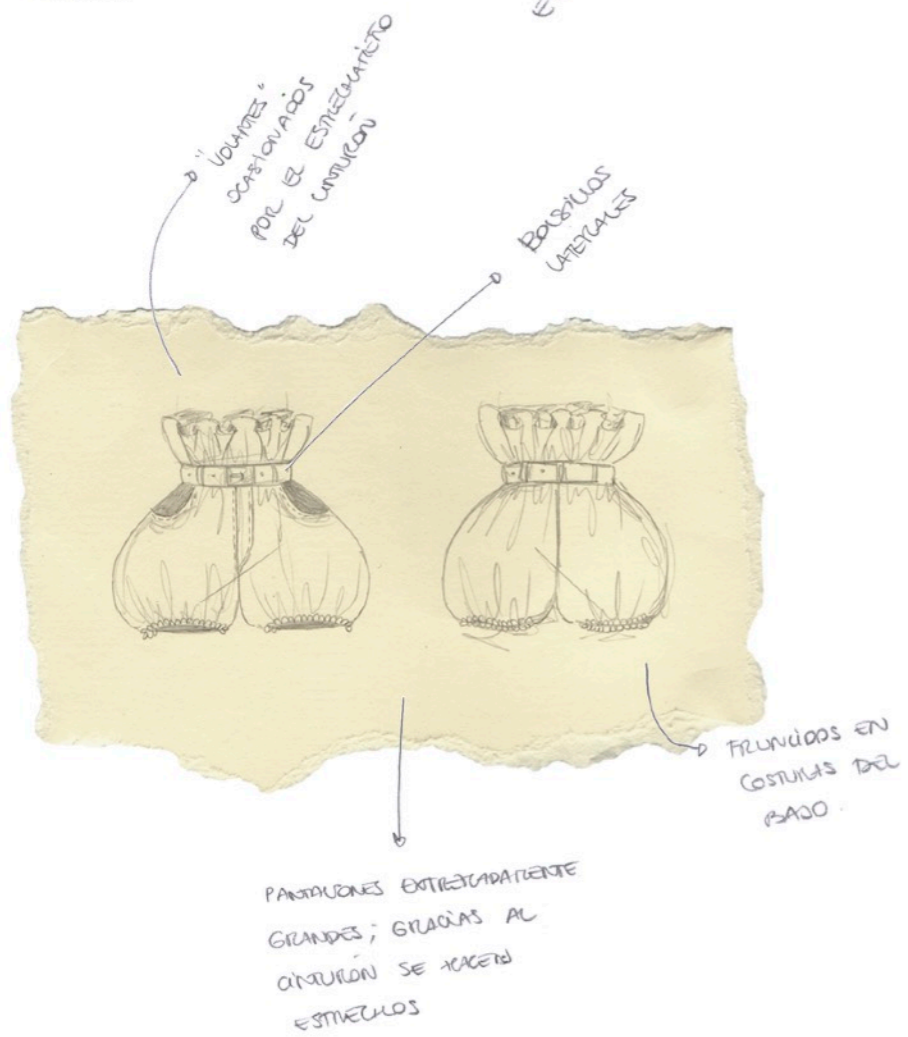 "VOLANTES"
OCASIONADOS
POR EL ESTRECHAMIENTO
DEL CINTURÓN
BOLSILLOS
LATERALES
FRUNCIDOS EN
COSTURAS DEL
BAJO.
PANTALONES EXTREMADAMENTE
GRANDES; GRACIAS AL
CINTURÓN SE HACEN
ESTRECHOS